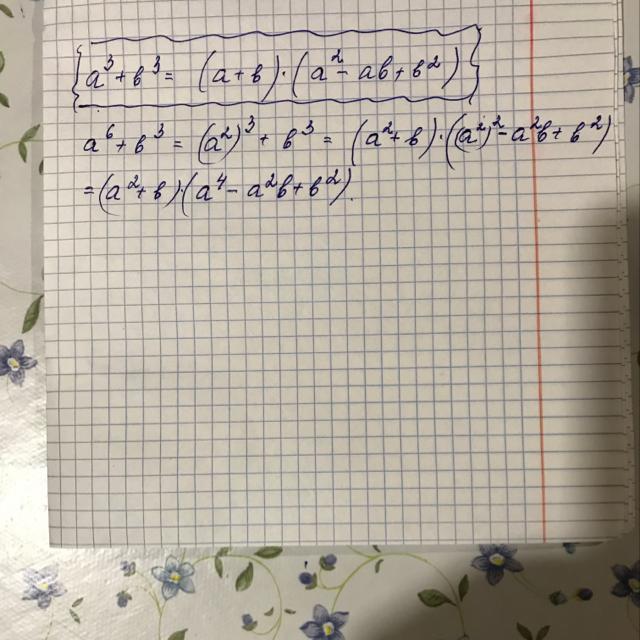 a³ + b³ = (a + b) · (a² - ab + b²)
a⁶ + b³ = (a²)³ + b³ = (a² + b) · ((a²)² - a²b + b²)
= (a² + b)(a⁴ - a²b + b²).